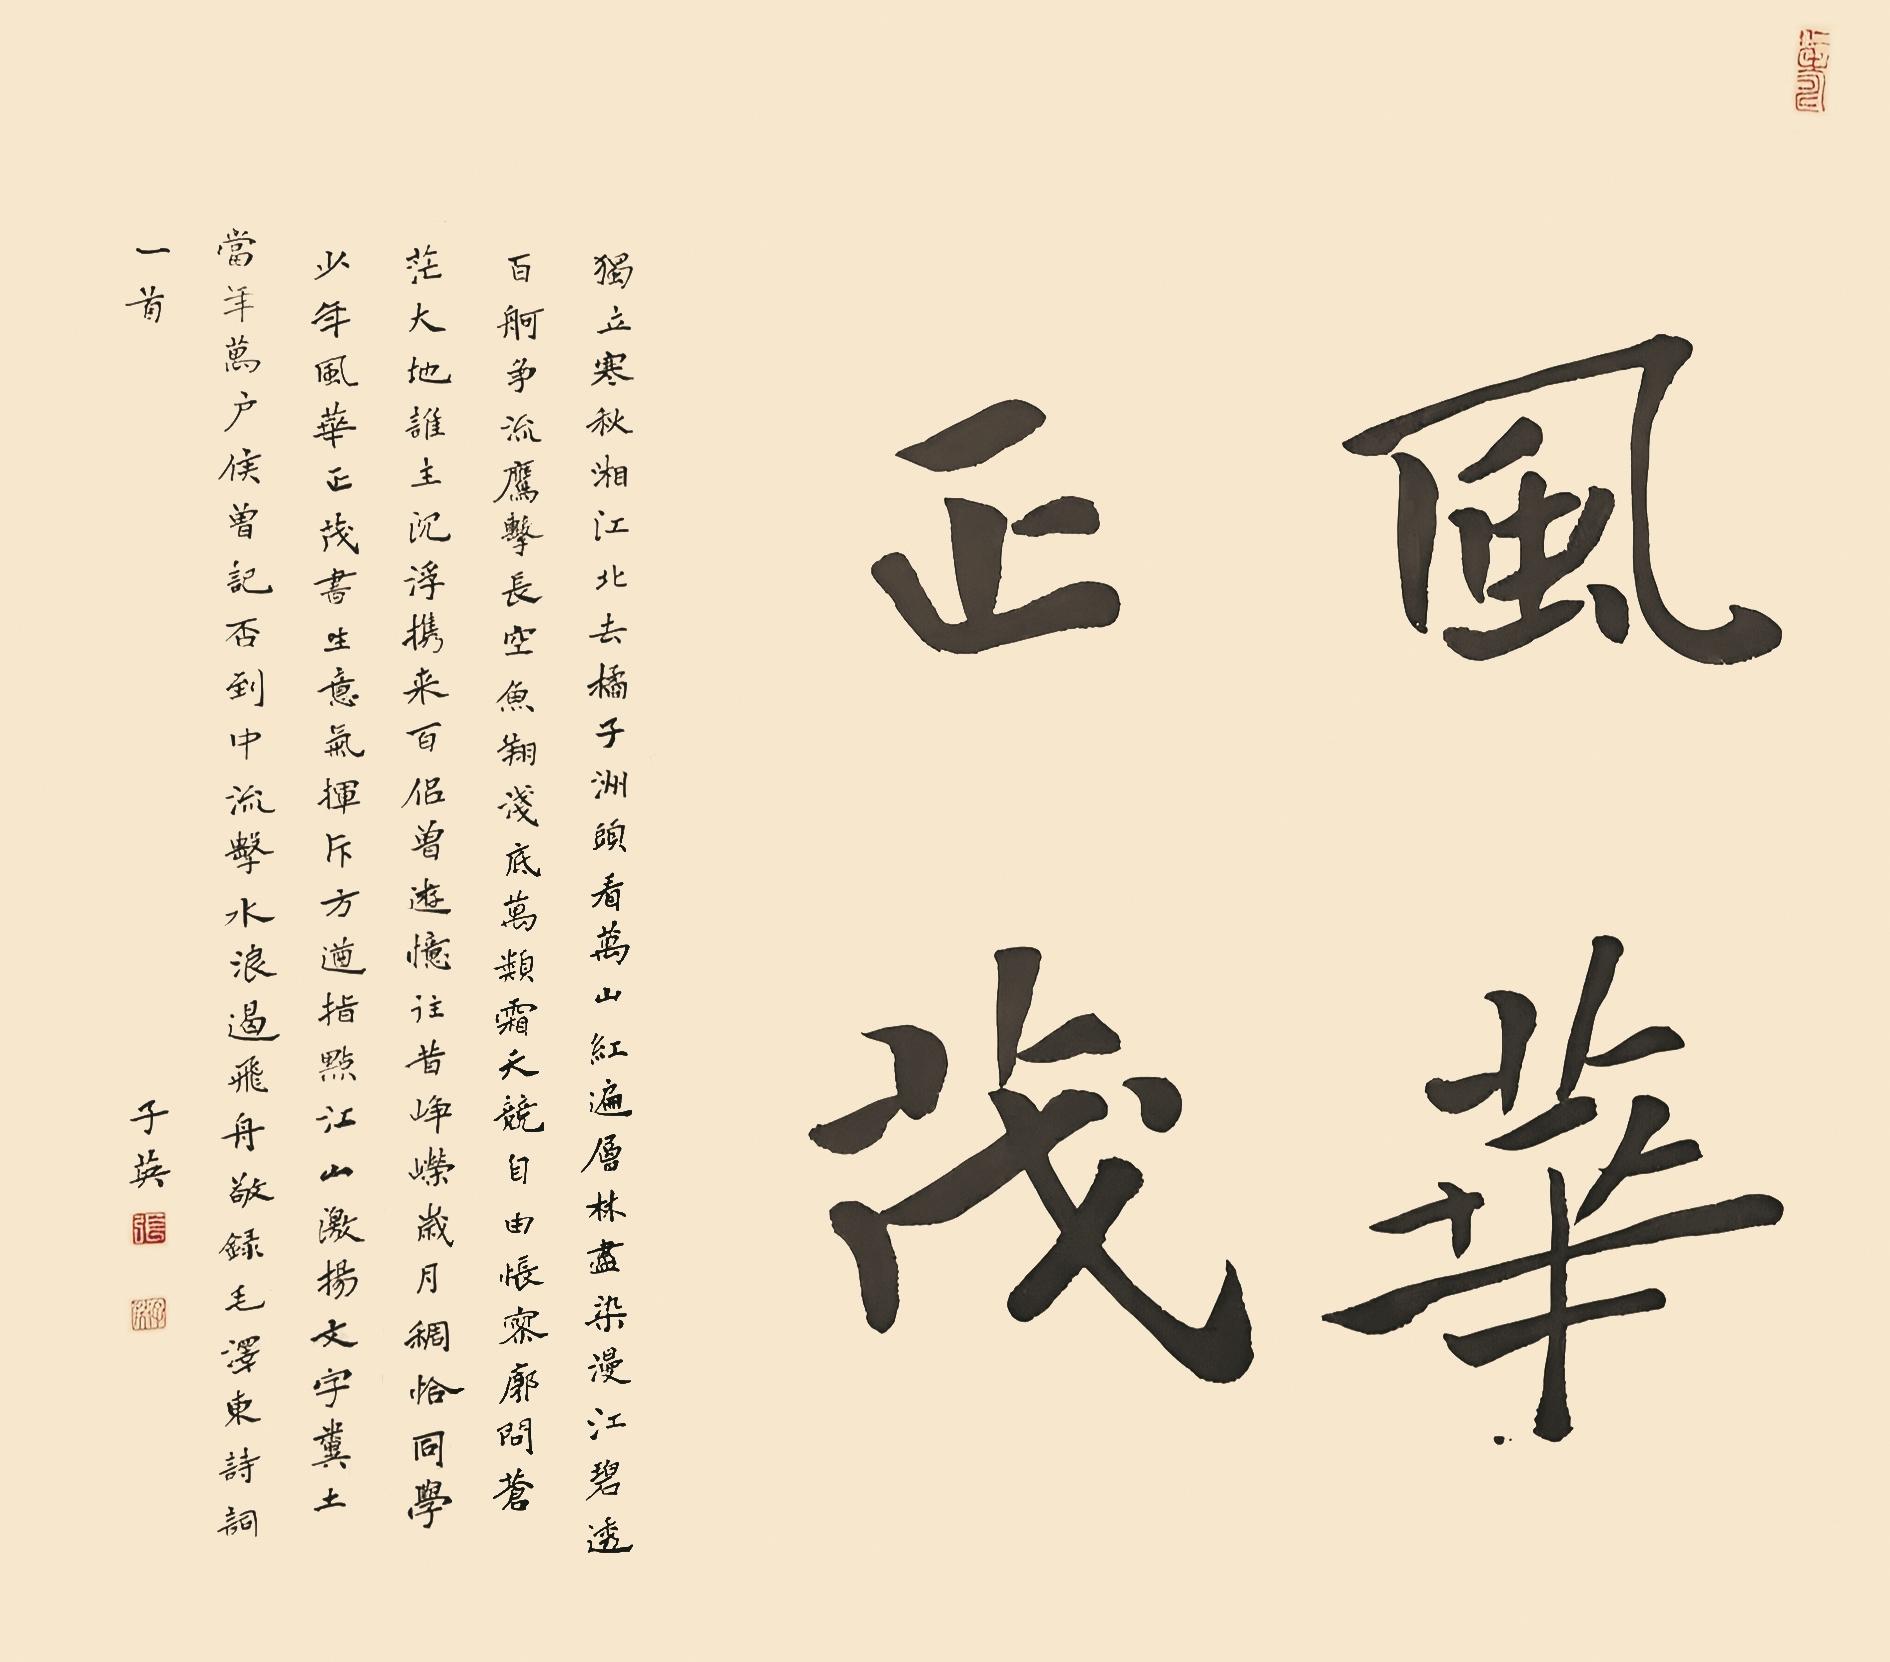 風華
正茂
獨立寒秋湘江北去橘子洲頭看萬山紅遍層林盡染漫江碧透
百舸争流鷹擊長空魚翔淺底萬類霜天競自由悵寥廓問蒼
茫大地誰主沉浮攜来百侣曾遊憶往昔崢嶸歲月稠恰同學
少年風華正茂書生意氣揮斥方遒指點江山激揚文字糞土
當年萬户侯曾記否到中流擊水浪遏飛舟敬録毛澤東詩詞
一首
子英